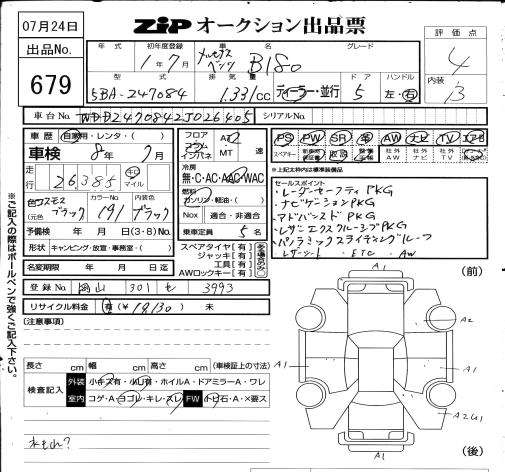 07月24日
出品No.
679
ZiP オークション出品票
評価点
4
内装
B
年式 初年度登録 車名 グレード
1年7月 メルセデスベンツ B180
型式 排気量 ドア ハンドル
5BA-247084 1.33L/CC ディーラー・並行 5 左・右
車台No. WDD2470842J026405 シリアルNo.
車歴 自家用・レンタ・( )
車検 8年7月
走行 26385 キロ マイル
色 コスモスブラック (元色 ) カラーNo. 191 内装色 ブラック
予備検 年 月 日 (3・8) No.
形状 キャンピング・放宣・事務室・( )
名変期限 年 月 日迄
登録No. 岡山 301 も 3993
リサイクル料金 有(¥ 19,130) 未
フロア コラム インパネ AT・MT 速
冷房 無・C・AC・AAC・WAC
燃料 ガソリン・軽油・( )
Nox 適合・非適合
乗車定員 5 名
スペアタイヤ[有]
ジャッキ[有]
工具[有]
AWロックキー[有]
ある場合のみ○
PS PW SR 革 AW ナビ TV エアB
スペアキー 新車時保証書 取説 記録手帳 社外AW 社外ナビ 社外TV
※上記太枠内は標準装備品
セールスポイント
・レーダーセーフティPKG
・ナビゲーションPKG
・アドバンスドPKG
・レザーエクスクルーシブPKG
・パノラミックスライディングルーフ
・レザーシート ・ETC ・AW
(注意事項)
長さ cm 幅 cm 高さ cm (車検証上の寸法)
検査記入 外装 小キズ有・小凹有・ホイルA・ドアミラーA・ワレ
室内 コゲ・A・ヨゴレ・キレ・スレ FW トビ石・A・X要ス
水もれ?
※ご記入の際はボールペンで強くご記入下さい。
(前)
A1
A2
A1
A1
A2U1
A1
(後)